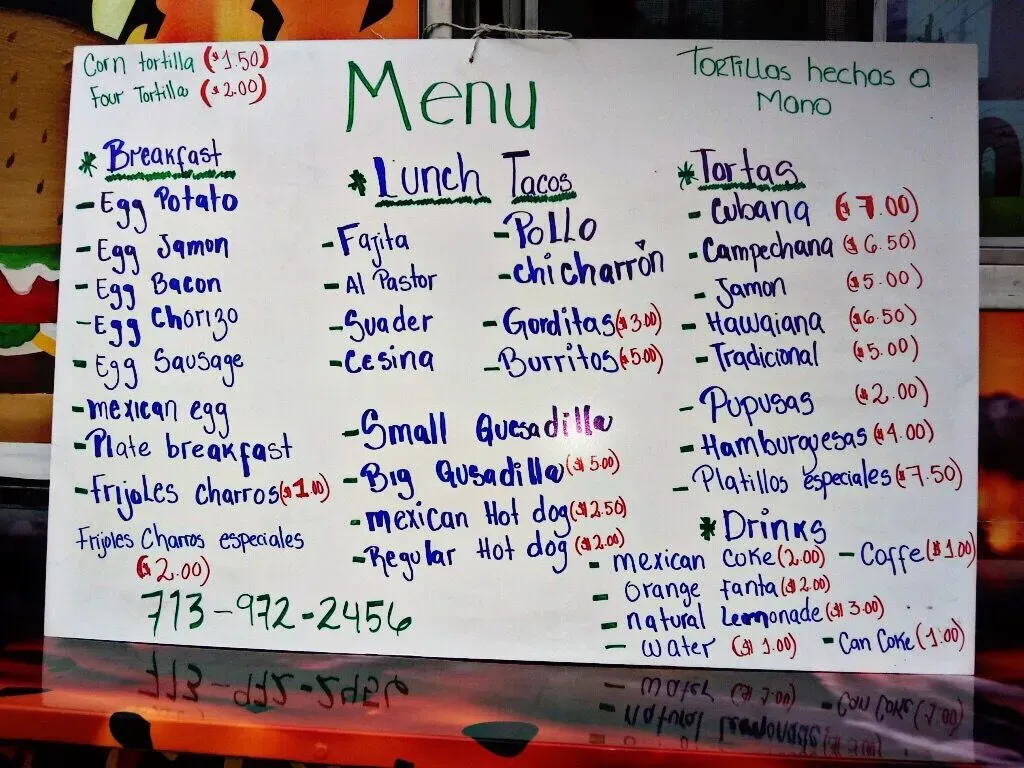 Corn tortilla ($1.50)
Four Tortilla ($2.00)
Menu
TORTillas hechas a
Mano
* Breakfast
- Egg Potato
- Egg Jamon
- Egg Bacon
- Egg Chorizo
- Egg Sausage
- mexican egg
- Plate breakfast
- frijoles charros ($1.00)
Frijoles Charros especiales
($2.00)
713-972-2456
* Lunch Tacos
- Fajita
- Al Pastor
- Suader
- Cesina
- Pollo
- chicharrón
- Gorditas ($3.00)
- Burritos ($5.00)
- Small Quesadilla
- Big Qusadilla ($5.00)
- mexican Hot dog ($2.50)
- Regular Hot dog ($2.00)
* Tortas
- Cubana ($7.00)
- Campechana ($6.50)
- Jamon ($5.00)
- Hawaiana ($6.50)
- Tradicional ($5.00)
- Pupusas ($2.00)
- Hamburguesas ($4.00)
- Platillos especiales ($7.50)
* Drinks
- mexican coke (2.00) - Coffe ($1.00)
- orange fanta ($2.00)
- natural Lemonade ($3.00)
- water ($1.00) - Can Coke (1.00)